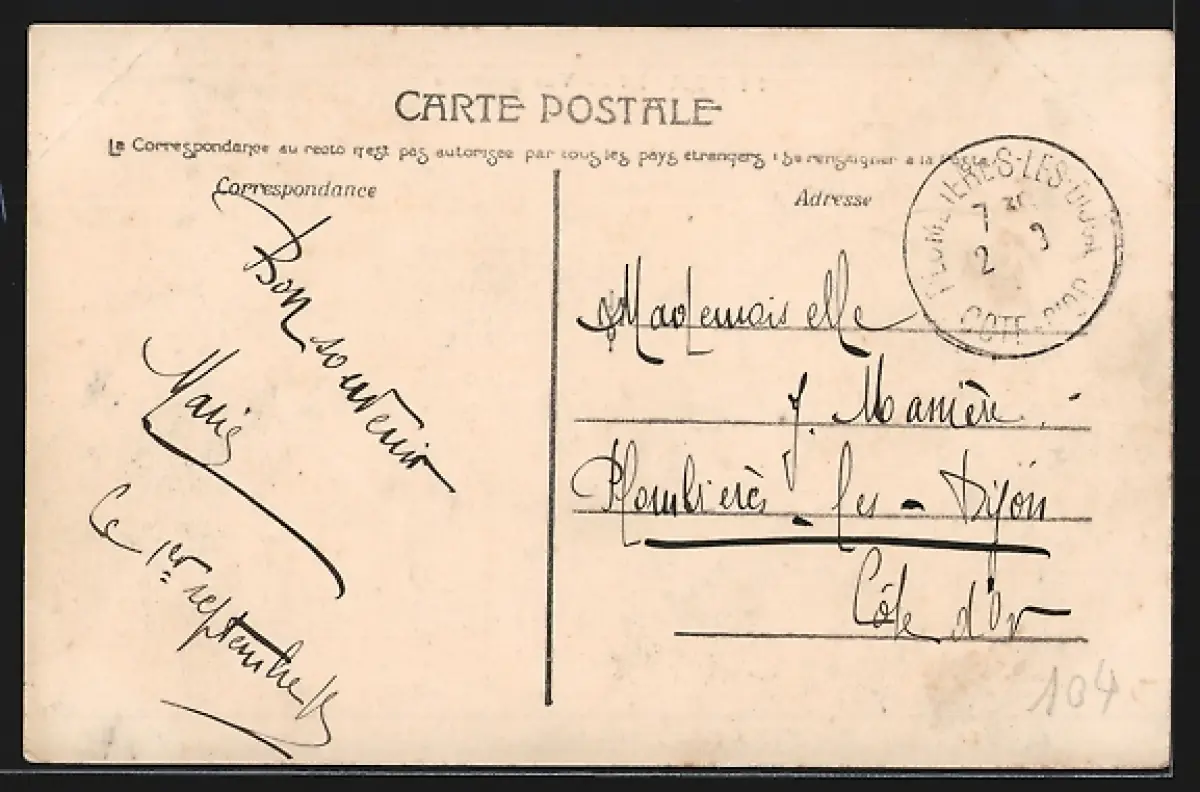 CARTE POSTALE
La Correspondance au recto n'est pas autorisée par tous les pays étrangers (Se renseigner à la Poste)
Correspondance
Bon souvenir
Marie
Ce 1er septembre
Adresse
Mademoiselle
J. Manière.
Plombières-les-Dijon
Côte d'Or
PLOMBIERES-LES-DIJON
7 30
2 9
COTE-D'OR
104.-